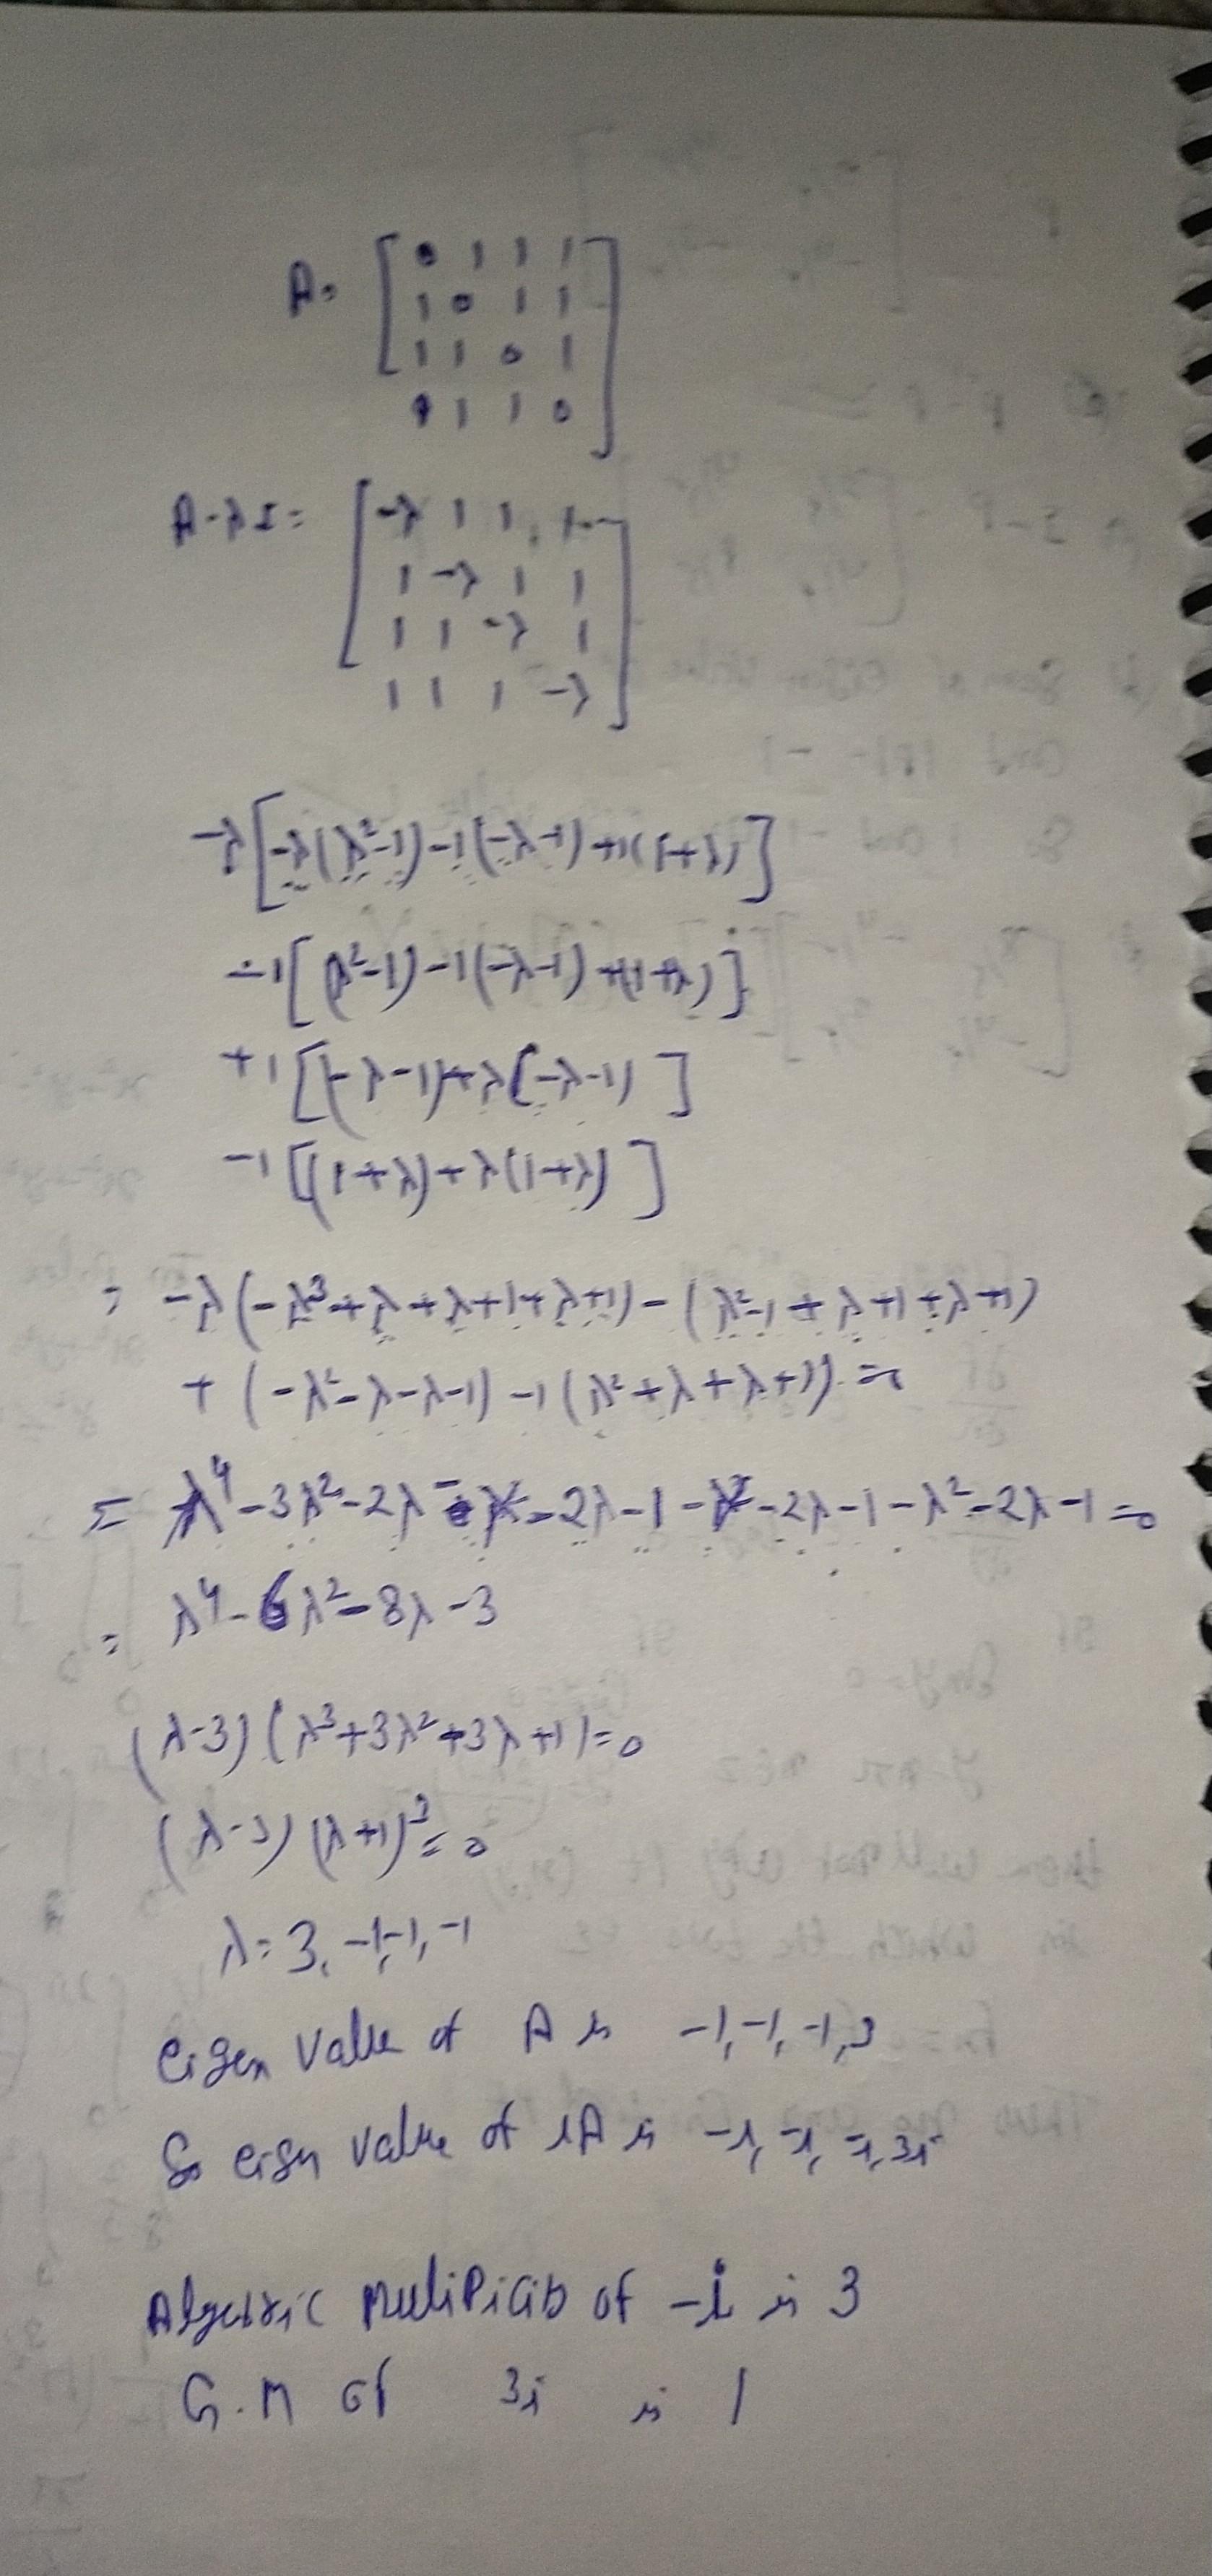 A= [0 1 1 1
1 0 1 1
1 1 0 1
1 1 1 0]
A-λI = [-λ 1 1 1
1 -λ 1 1
1 1 -λ 1
1 1 1 -λ]
-λ[-λ(λ²-1)-1(-λ-1)+1(1+λ)]
-1[(λ²-1)-1(-λ-1)+1(1+λ)]
+1[(-λ-1)+λ(-λ-1)]
-1[(1+λ)+λ(1+λ)]
= -λ(-λ³+λ+λ+1+λ+1)-(λ²-1+λ+1+λ+1)
+(-λ²-λ-λ-1)-1(λ²+λ+λ+1)=0
= λ⁴-3λ²-2λ-λ²-2λ-1-λ²-2λ-1-λ²-2λ-1=0
= λ⁴-6λ²-8λ-3
(λ-3)(λ³+3λ²+3λ+1)=0
(λ-3)(λ+1)³=0
λ=3,-1,-1,-1
eigen value of A is -1,-1,-1,3
So eigen value of iA is -i,-i,-i,3i
Algebric Multiplicity of -i is 3
G.M of 3i is 1